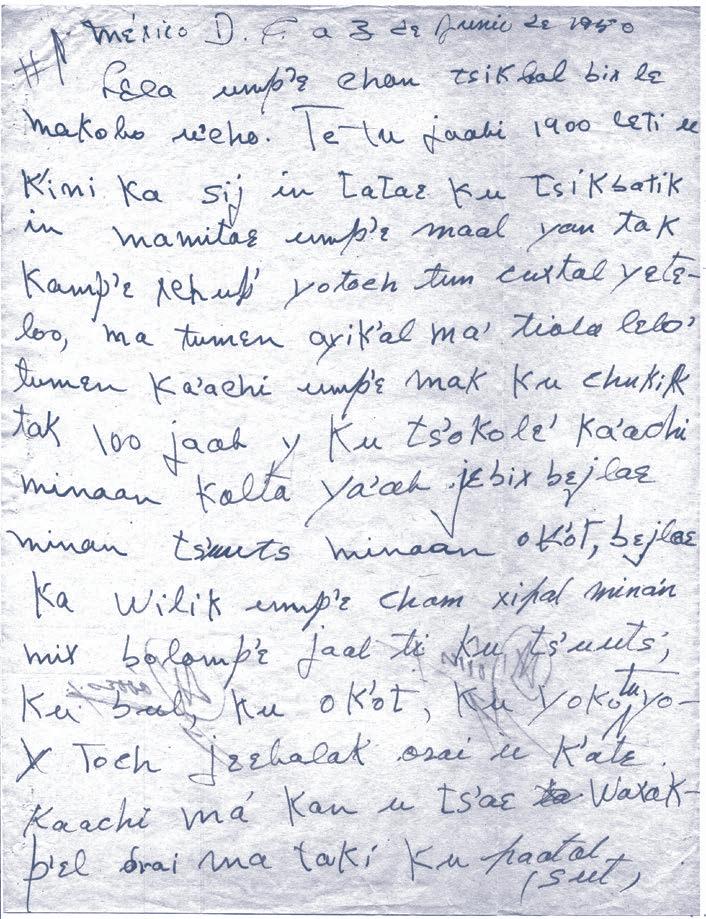 México D. F. a 3 de Junio de 1950
#1
Lela ump'e chan tsikbal bix le
makobo ucho. Te tu jaabi 1900 leti u
K'ini Ka sij in tatae Ku tsikbatik
in mamitae ump'e maal yan tak
Kamp'e xchup' yotoch tun cuxtal yete-
loo, ma tumen ayik'al ma' tiola lelo'
tumen Ka'achi ump'e mak Ku chukik
tak 100 jaab y Ku ts'okole' Ka'achi
minaan Kolta ya'ab jebix bejlae
minan ts'uuts minaan ok'ot, bejlae
Ka Wilik ump'e cham xipal minán
mix bolomp'e jaal ti Ku ts'uuts',
Ku bul, Ku ok'ot, Ku yok tu yo-
toch jeebalak orai u K'ate.
Kaachi má Kan u ts'ae Waxak-
p'el orai ma taki Ku paatal
(sut,